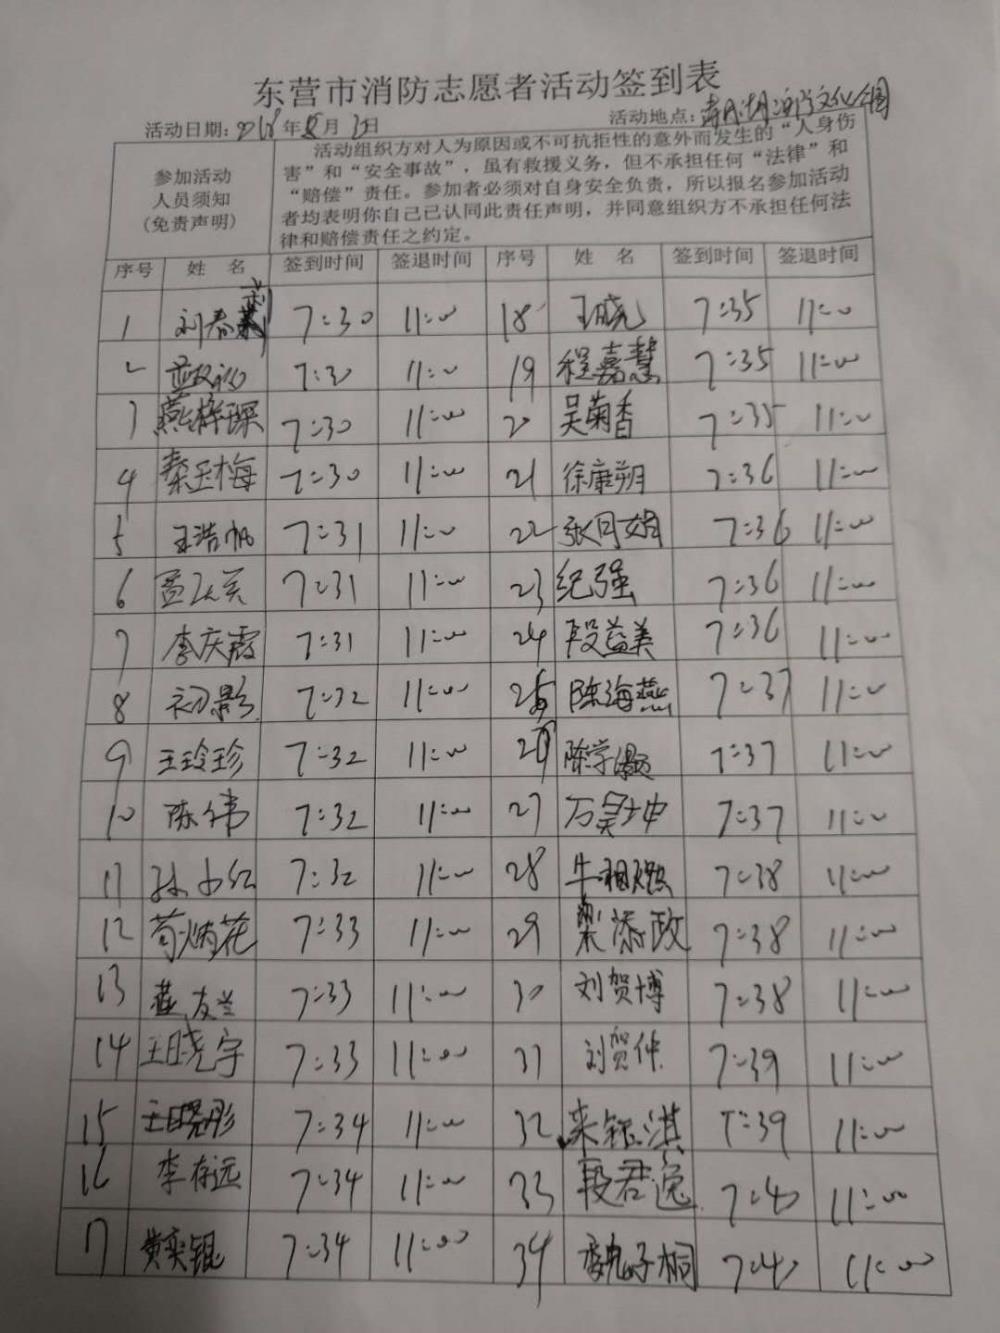 东营市消防志愿者活动签到表
活动日期：2018年 月 日 活动地点：
参加活动
人员须知
(免责声明)
活动组织方对人为原因或不可抗拒性的意外而发生的“人身伤
害”和“安全事故”，虽有救援义务，但不承担任何“法律”和
“赔偿”责任。参加者必须对自身安全负责，所以报名参加活动
者均表明你自己已认同此责任声明，并同意组织方不承担任何法
律和赔偿责任之约定。
序号 姓 名 签到时间 签退时间 序号 姓 名 签到时间 签退时间
1 刘春 7:30 11:00 18 王晓 7:35 11:00
2 7:30 11:00 19 程嘉慧 7:35 11:00
3 燕梓琛 7:30 11:00 20 吴菊香 7:35 11:00
4 秦玉梅 7:30 11:00 21 徐康朔 7:36 11:00
5 王浩帆 7:31 11:00 22 张月娟 7:36 11:00
6 7:31 11:00 23 纪强 7:36 11:00
7 李庆霞 7:31 11:00 24 段益美 7:36 11:00
8 初影 7:32 11:00 25 陈海燕 7:37 11:00
9 王玲珍 7:32 11:00 26 陈学灏 7:37 11:00
10 陈伟 7:32 11:00 27 万昊坤 7:37 11:00
11 孙小红 7:32 11:00 28 7:38 11:00
12 苟炳花 7:33 11:00 29 梁添政 7:38 11:00
13 友兰 7:33 11:00 30 刘贺博 7:38 11:00
14 王晓宇 7:33 11:00 31 刘贺仲 7:39 11:00
15 王晓彤 7:34 11:00 32 淇 7:39 11:00
16 李存远 7:34 11:00 33 段君逸 7:40 11:00
17 黄奕锟 7:34 11:00 34 魏子桐 7:40 11:00